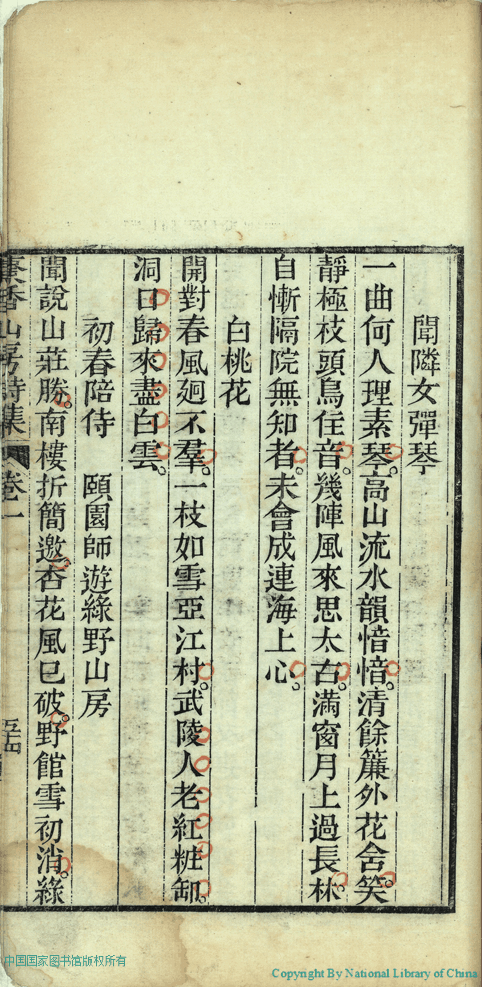 聞隣女彈琴
一曲何人理素琴。高山流水韻愔愔。清餘簾外花含笑。
靜極枝頭鳥住音。幾陣風來思太古。滿窗月上過長林。
自慚隔院無知者。未會成連海上心。
白桃花
開對春風迥不羣。一枝如雪亞江村。武陵人老紅粧卸。
洞口歸來盡白雲。
初春陪侍　頤園師遊綠野山房
聞說山莊勝。南樓折簡邀。杏花風已破。野館雪初消。綠
香山房詩集 卷一
中国国家图书馆版权所有
Copyright By National Library of China